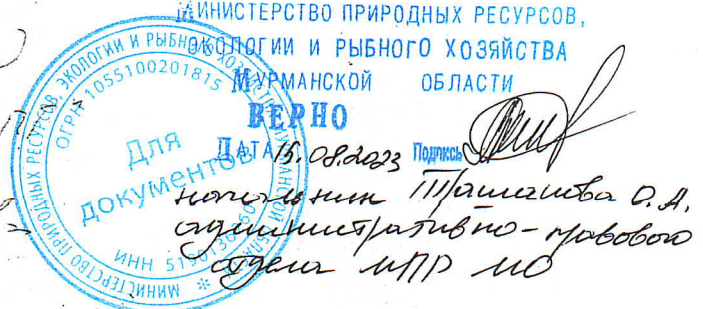 МИНИСТЕРСТВО ПРИРОДНЫХ РЕСУРСОВ,
ЭКОЛОГИИ И РЫБНОГО ХОЗЯЙСТВА
МУРМАНСКОЙ ОБЛАСТИ
ВЕРНО
ДАТА 15.08.2023 Подпись
начальник О.А.
административно-правового
отдела МПР МО
МИНИСТЕРСТВО ПРИРОДНЫХ РЕСУРСОВ, ЭКОЛОГИИ И РЫБНОГО
ОГРН 1055100201815
Для
документов
ИНН